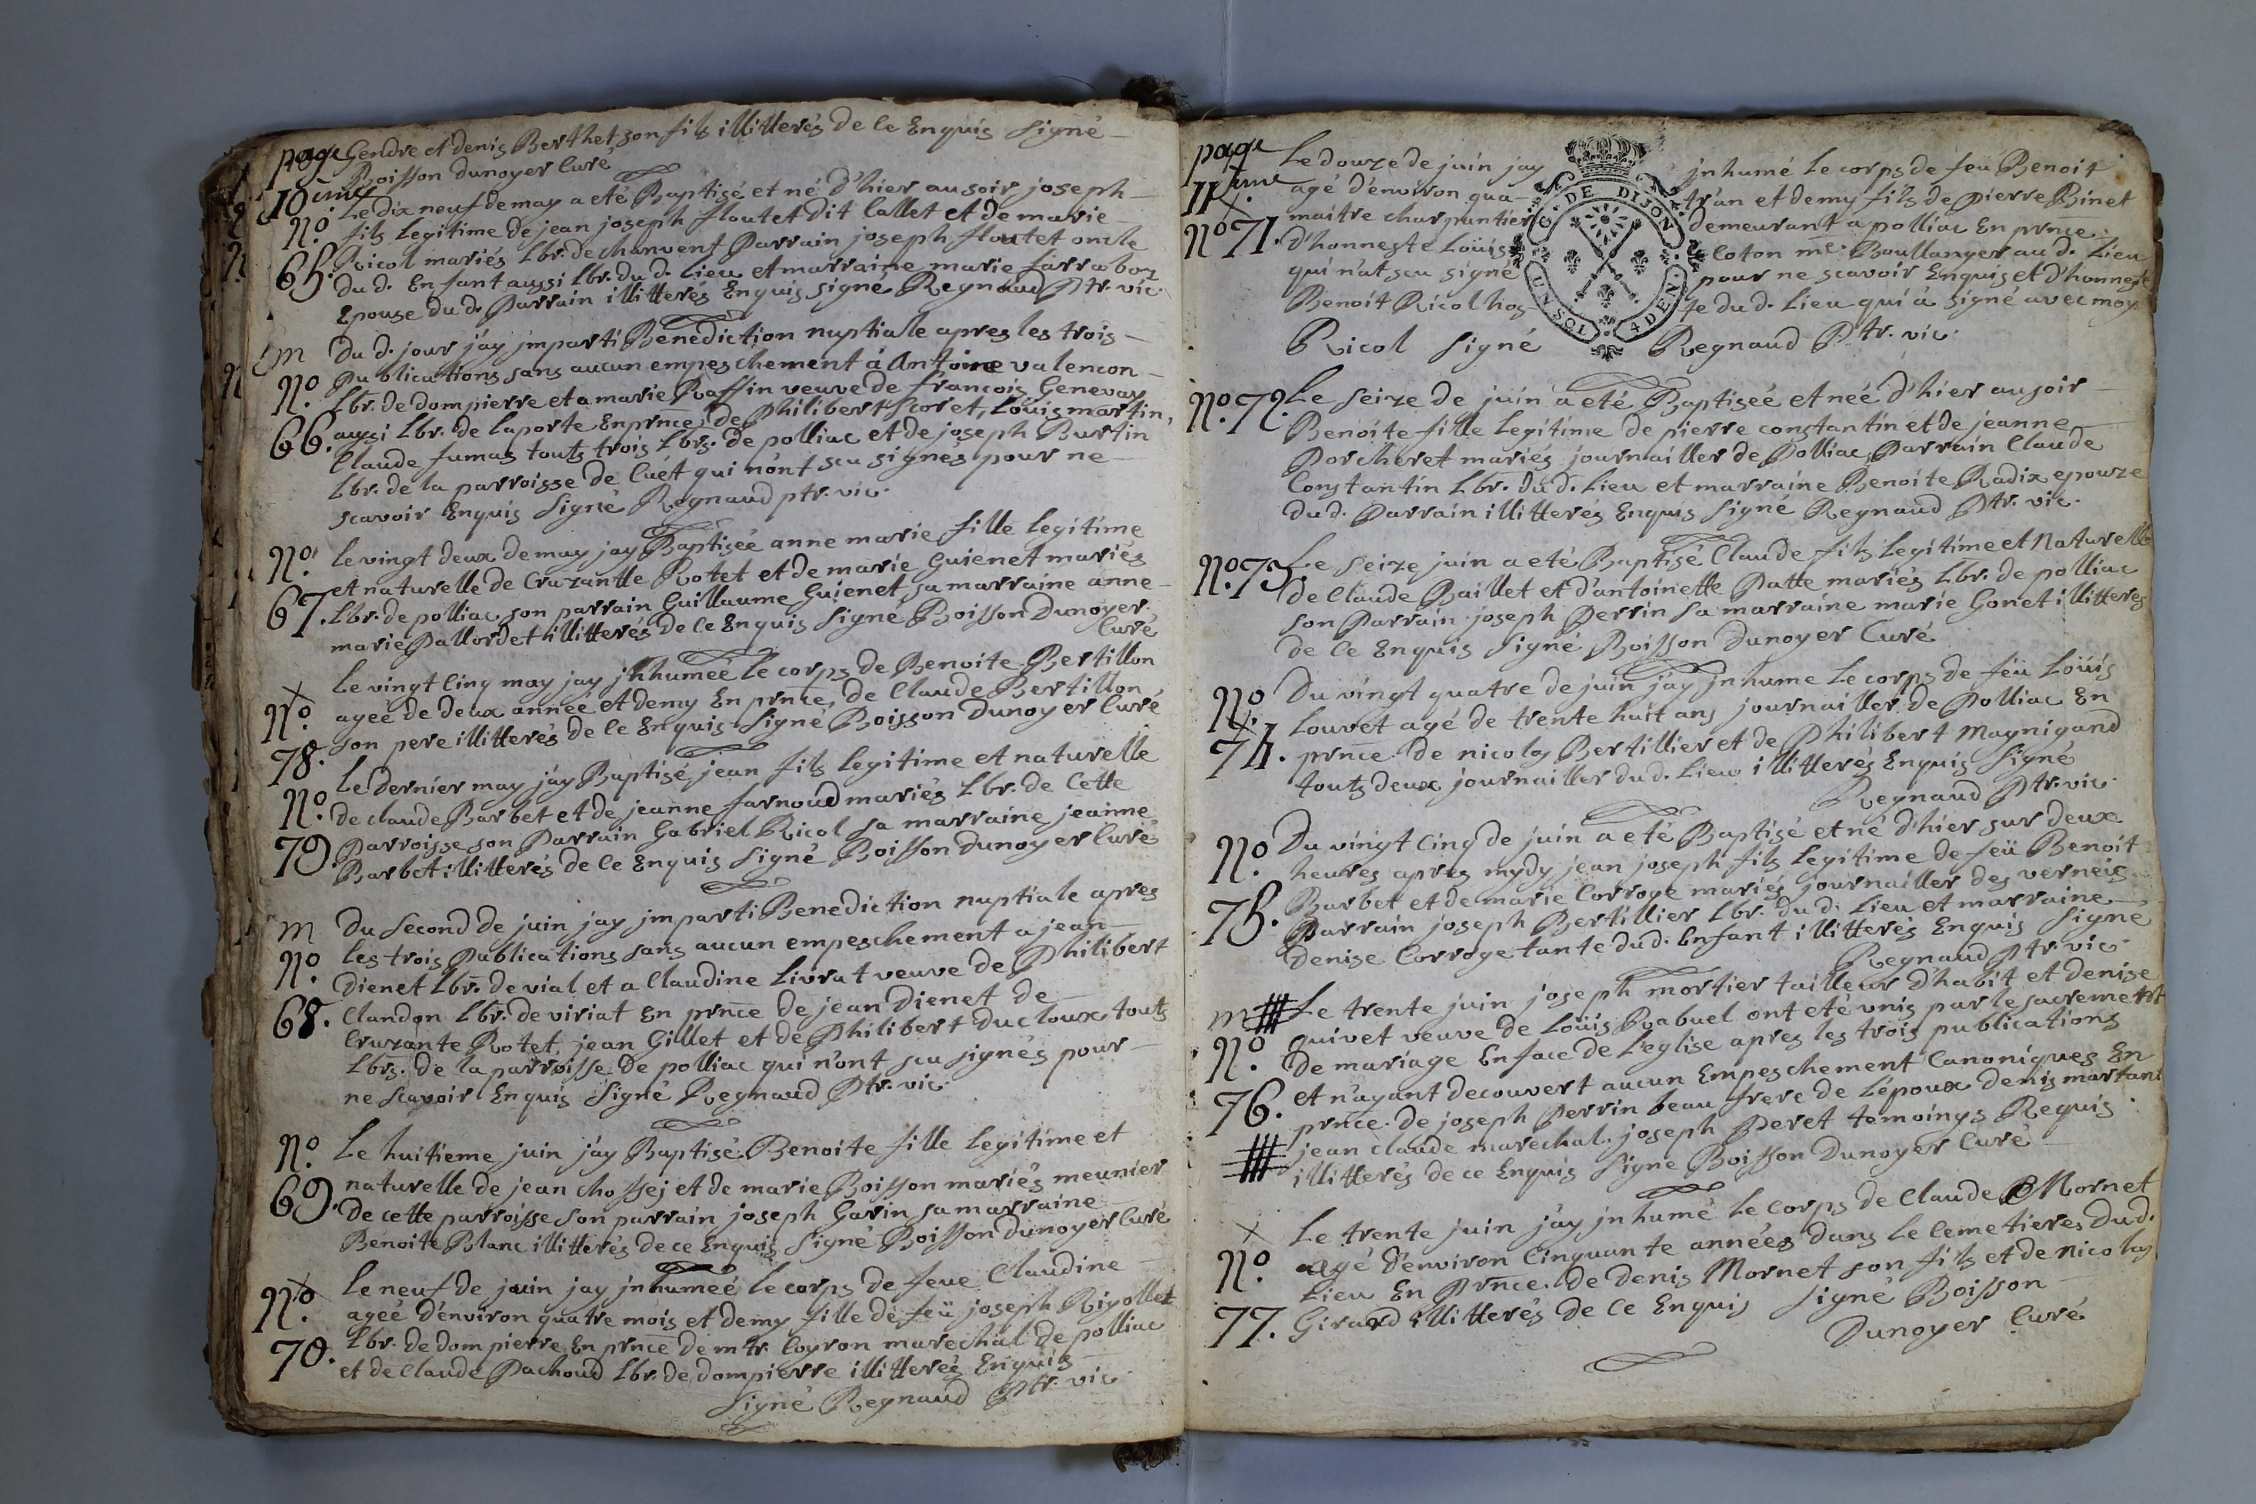 page Gendre et denis Berthet son fils illitterés de ce Enquis signé
10eme Boisson Dunoyer Curé
Le dix neuf de may a eté Baptisé et né d'hier au soir joseph
No. fils legitime de jean joseph floutet dit lallet et de marie
65. Ricol mariés Lbr. de chanvent Parrain joseph floutet oncle
du d. Enfant aussi Lbr. du d. Lieu et marraine marie farraboz
Epouse du d. Parrain illitterés Enquis signé Regnaud Ptr. vic.
m Du d. jour j'ay jmparti Benediction nuptiale apres les trois
No Publications sans aucun empeschement á Antoine valencon
Lbr. de dompierre et a marie Raffin veuve de françois Genevay
66. aussi Lbr. de laporte Enprnce de Philibert Scoret, Loüis martin,
Claude fumas touts trois Lbrs. de polliac et de joseph Burtin
Lbr. de la parroisse de Cuét qui n'ont scu signés pour ne
scavoir Enquis Signé Regnaud ptr. vic.
No. Le vingt deux de may jay Baptiseé anne marie fille legitime
et naturelle de Cruzantle Rotet et de marie Guienet mariés
67. Lbr. de polliac son parrain Guillaume Guienet sa marraine anne
marie Pallordet illitterés de ce Enquis signé Boisson Dunoyer
Curé
Le vingt Cinq may jay jnhumeé le corps de Benoite Bertillon
No ageé de deux anneé et demy En prnce, de Claude Bertillon
78. son pere illitterés de ce Enquis Signé Boisson Dunoyer Curé
Le dernier may j'ay Baptisé, jean fils legitime et naturelle
No. de claude Barbet et de jeanne farnoud mariés Lbr. de Cette
79. Parroisse son Parrain Gabriel Ricol sa marraine jeanne
Barbet illitterés de ce Enquis signé Boisson Dunoyer Curé
m Du second de juin jay jmparti Benediction nuptiale apres
No les trois Publications sans aucun empeschement a jean
Dienet Lbr. de vial et a Claudine Livrat veuve de Philibert
68. Clandon Lbr. de viriat En prnce de jean Dienet de
Cruzante Rotet, jean Gillet et de Philibert Ducloux, touts
Lbrs. de la parroisse de polliac qui n'ont scu signés pour
ne scavoir Enquis Signé Regnaud Ptr. vic.
No. Le huitieme juin j'ay Baptisé Benoite fille legitime et
naturelle de jean chossej et de marie Boisson mariés meunier
69. de cette parroisse son parrain joseph Garin sa marraine
Benoite Blanc illitterés de ce Enquis signé Boisson Dunoyer Curé
Le neuf de juin jay jnhumeé le corps de feue Claudine
No. ageé d'environ quatre mois et demy fille de feü joseph Rigollet
Lbr. de dompierre En prnce de mtr. Coyron marechal de polliac
70. et de Claude Pachoud Lbr. de dompierre illitterés Enquis
Signé Regnaud Ptr. vic.
page Le douze de juin jay jnhumé Le corps de feu Benoit
11eme agé d'environ qua- tr'an et demy fils de pierre Binet
maitre charpantier demeurant a polliac En prnce.
No 71. d'honneste Loüis Coton me. Boullanger au d. Lieu
qui n'at scu signé pour ne scavoir Enquis et d'honneste
Benoit Ricol hos- te du d. Lieu qui á signé avec moy
Ricol signé Regnaud Ptr. vic.
G. DE DIJON
UN SOL 4 DEN.
No. 72. Le seize de juin a eté Baptiseé et neé d'hier au soir
Benoite fille Legitime de pierre constantin et de jeanne
Porcheret mariés journailler de Polliac, Parrain Claude
Constantin Lbr. du d. Lieu et marraine Benoite Radix epouze
du d. Parrain illitterés Enquis signé Regnaud Ptr. vic.
No. 73. Le seize juin a eté Baptisé Claude fils legitime et Naturelle
de Claude Baillet et d'antoinette Patte mariés Lbr. de polliac
son Parrain joseph Perrin sa marraine marie Gonet illitterés
de ce Enquis signé Boisson Dunoyer Curé
No Du vingt quatre de juin j'ay jnhumé le corps de feü Loüis
Louvet agé de trente huit ans journailler de Polliac En
74. prnce. de nicolas Bertillier et de Philibert Magnigand
touts deux journailler du d. Lieu illitterés Enquis Signé
Regnaud Ptr. vic.
No Du vingt Cinq de juin a eté Baptisé et né d'hier sur deux
heures apres mydy jean joseph fils legitime de feü Benoit
75. Barbet et de marie Corroge mariés journailler des verneis
Parrain joseph Bertillier Lbr. du d. Lieu et marraine
Denise Corroge tante du d. Enfant illitterés Enquis signé
Regnaud Ptr. vic.
m Le trente juin joseph mortier tailleur d'habit et denise
No. quivet veuve de Loüis Rabuel ont eté unis par le sacrement
de mariage En face de L'eglise apres les trois publications
76. et n'ayant decouvert aucun Empeschement Canoniques En
prnce. de joseph Perrin beau frere de L'époux denis martant
jean claude marechal. joseph Peret temoings Requis
illitterés de ce Enquis Signe Boisson Dunoyer Curé
Le trente juin j'ay jnhumé le corps de Claude Mornet
No. agé d'environ Cinquante années dans le Cemetieres du d.
Lieu En Prnce. de Denis Mornet son fils et de nicolas
77. Girard illitterés de ce Enquis Signé Boisson
Dunoyer Curé